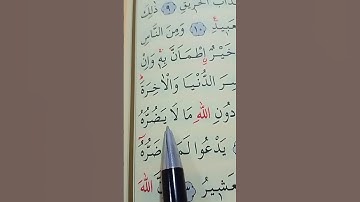 ذَابَ الْحَرِيقِ ﴿٩﴾ ذٰلِكَ
عَبِيدِ ﴿١٠﴾ وَمِنَ النَّاسِ
خَيْرٌ اِطْمَاَنَّ بِهِ وَاِنْ
سِرَ الدُّنْيَا وَالْاٰخِرَةَ
دُونِ اللّٰهِ مَا لَا يَضُرُّهُ
يَدْعُوا ضَرُّهُ
عَشِيرُ اللّٰهَ